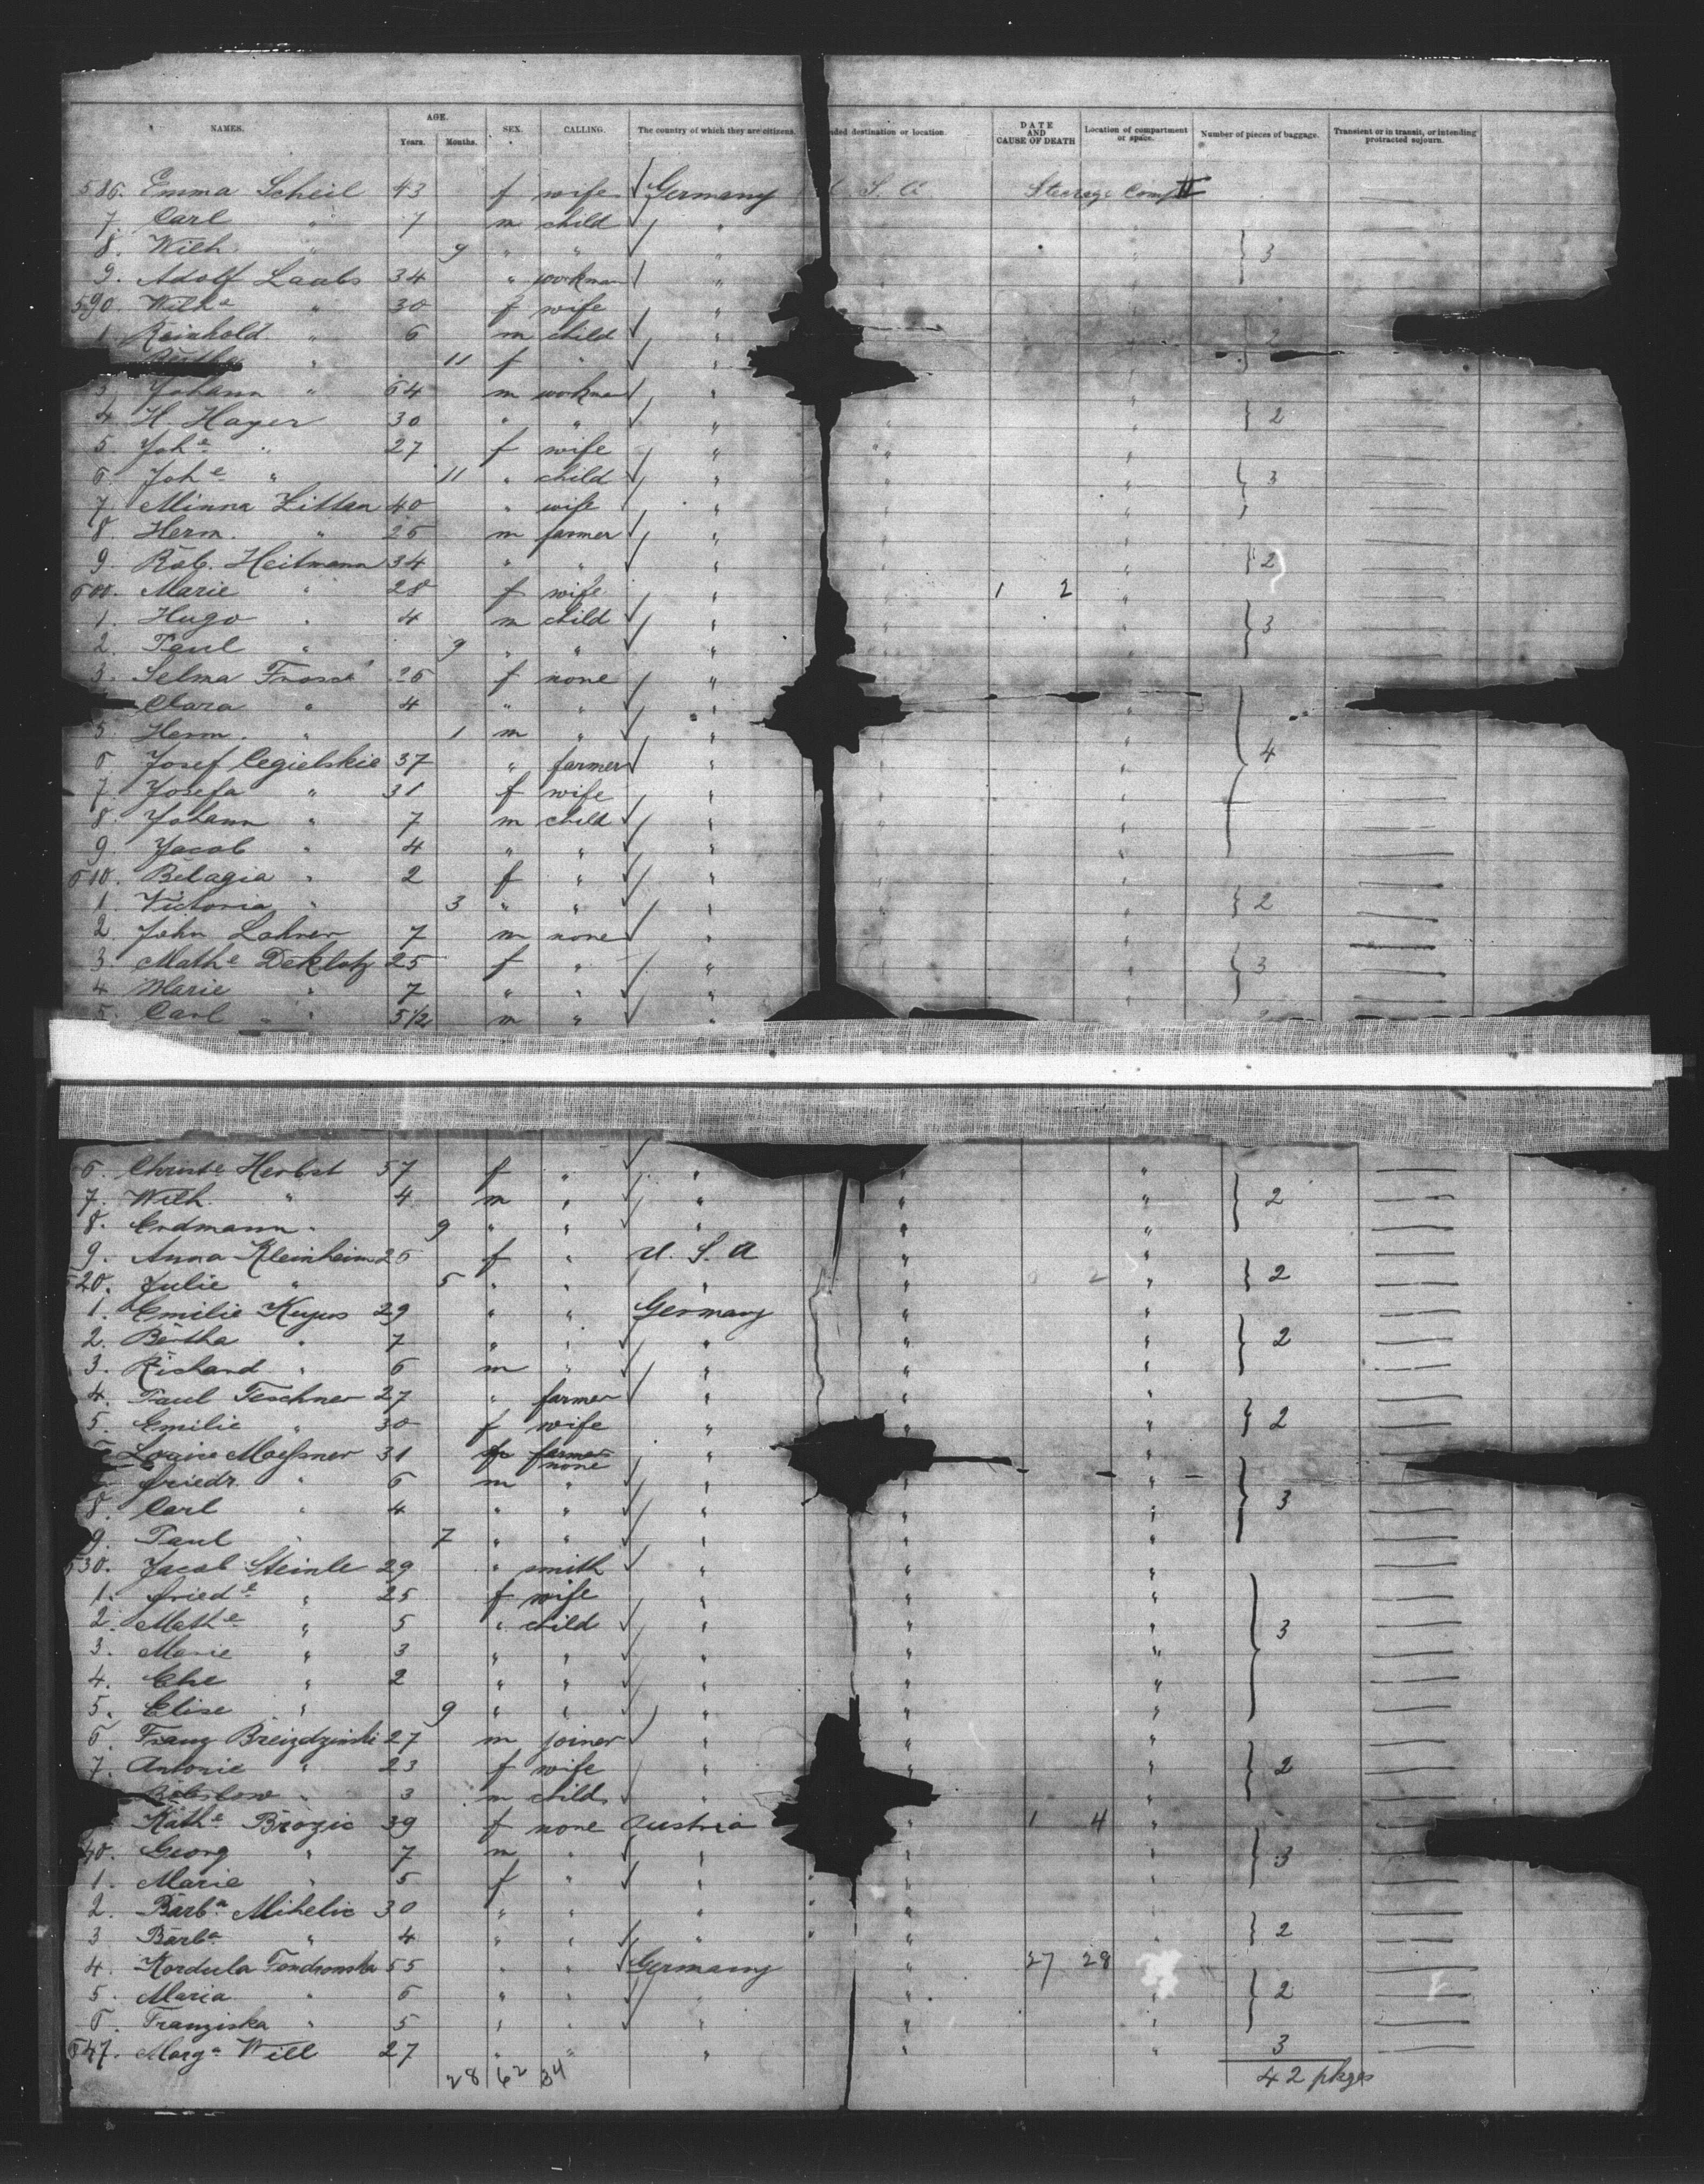 NAMES. AGE. Years. Months. SEX. CALLING. The country of which they are citizens. nded destination or location. DATE AND CAUSE OF DEATH Location of compartment or space. Number of pieces of baggage. Transient or in transit, or intending protracted sejourn.
586. Emma Scheil 43 f wife Germany S. A. Steerage Comp II
7. Carl " 7 m child "
8. Wilh. " 9 " " " 3
9. Adolf Laabs 34 " workman "
590. Wilh.e " 30 f wife "
1. Reinhold " 6 m child " 2
Bertha " 11 f " "
3. Johann " 64 m workman "
4. H. Hager 30 " " " 2
5. Joh.e " 27 f wife "
6. Joh.e " 11 " child " 3
7. Minna Littan 40 " wife "
8. Herm. " 26 m farmer "
9. Rob. Heitmann 34 " " " 2
600. Marie " 28 f wife " 1 2
1. Hugo " 4 m child " 3
2. Paul " 9 " " "
3. Selma 26 f none "
Clara " 4 " " "
5. Herm. " 1 m " " 4
6. Josef Cegielskie 37 " farmer "
7. Josefa " 31 f wife "
8. Johann " 7 m child "
9. Jacob " 4 " " "
610. Belagia " 2 f " "
1. Victoria " 3 " " " 2
2. John Lohrer 7 m none "
3. Math.e Deklotz 25 f " " 3
4. Marie " 7 " " "
5. Carl " 5 1/2 m " "
6. Christ.e Herbst 57 f " "
7. Wilh. " 4 m " " 2
8. Erdmann " 9 " " "
9. Anna Kleinheim 26 f " U. S. A "
20. Julie " 5 " " " 2 2
1. Emilie 29 " " Germany "
2. Bertha " 7 " " " 2
3. Richard " 6 m " "
4. Paul Teschner 27 " farmer "
5. Emilie " 30 f wife " 2
Louise Moeßner 31 f farmer none "
Friedr. " 6 m " "
8. Carl " 4 " " " 3
9. Paul " 7 " " "
630. Jacob Steinle 29 " smith "
1. Fried.e " 25 f wife "
2. Math.e " 5 " child " 3
3. Marie " 3 " " "
4. " 2 " " "
5. Elise " 9 " " "
6. Franz 27 m joiner "
7. Antonie " 23 f wife " 2
" 3 m child "
Kath.e Brozic 39 f none Austria " 1 4
40. Georg " 7 m " " 3
1. Marie " 5 f " "
2. Barb.a Mihelic 30 " " "
3 Barb.a " 4 " " " 2
4. Kordula 55 " " Germany " 27 28
5. Maria " 6 " " " 2
6. Franziska " 5 " " "
647. Marg.a Will 27 " " " 3
28 62 34 42 pkges